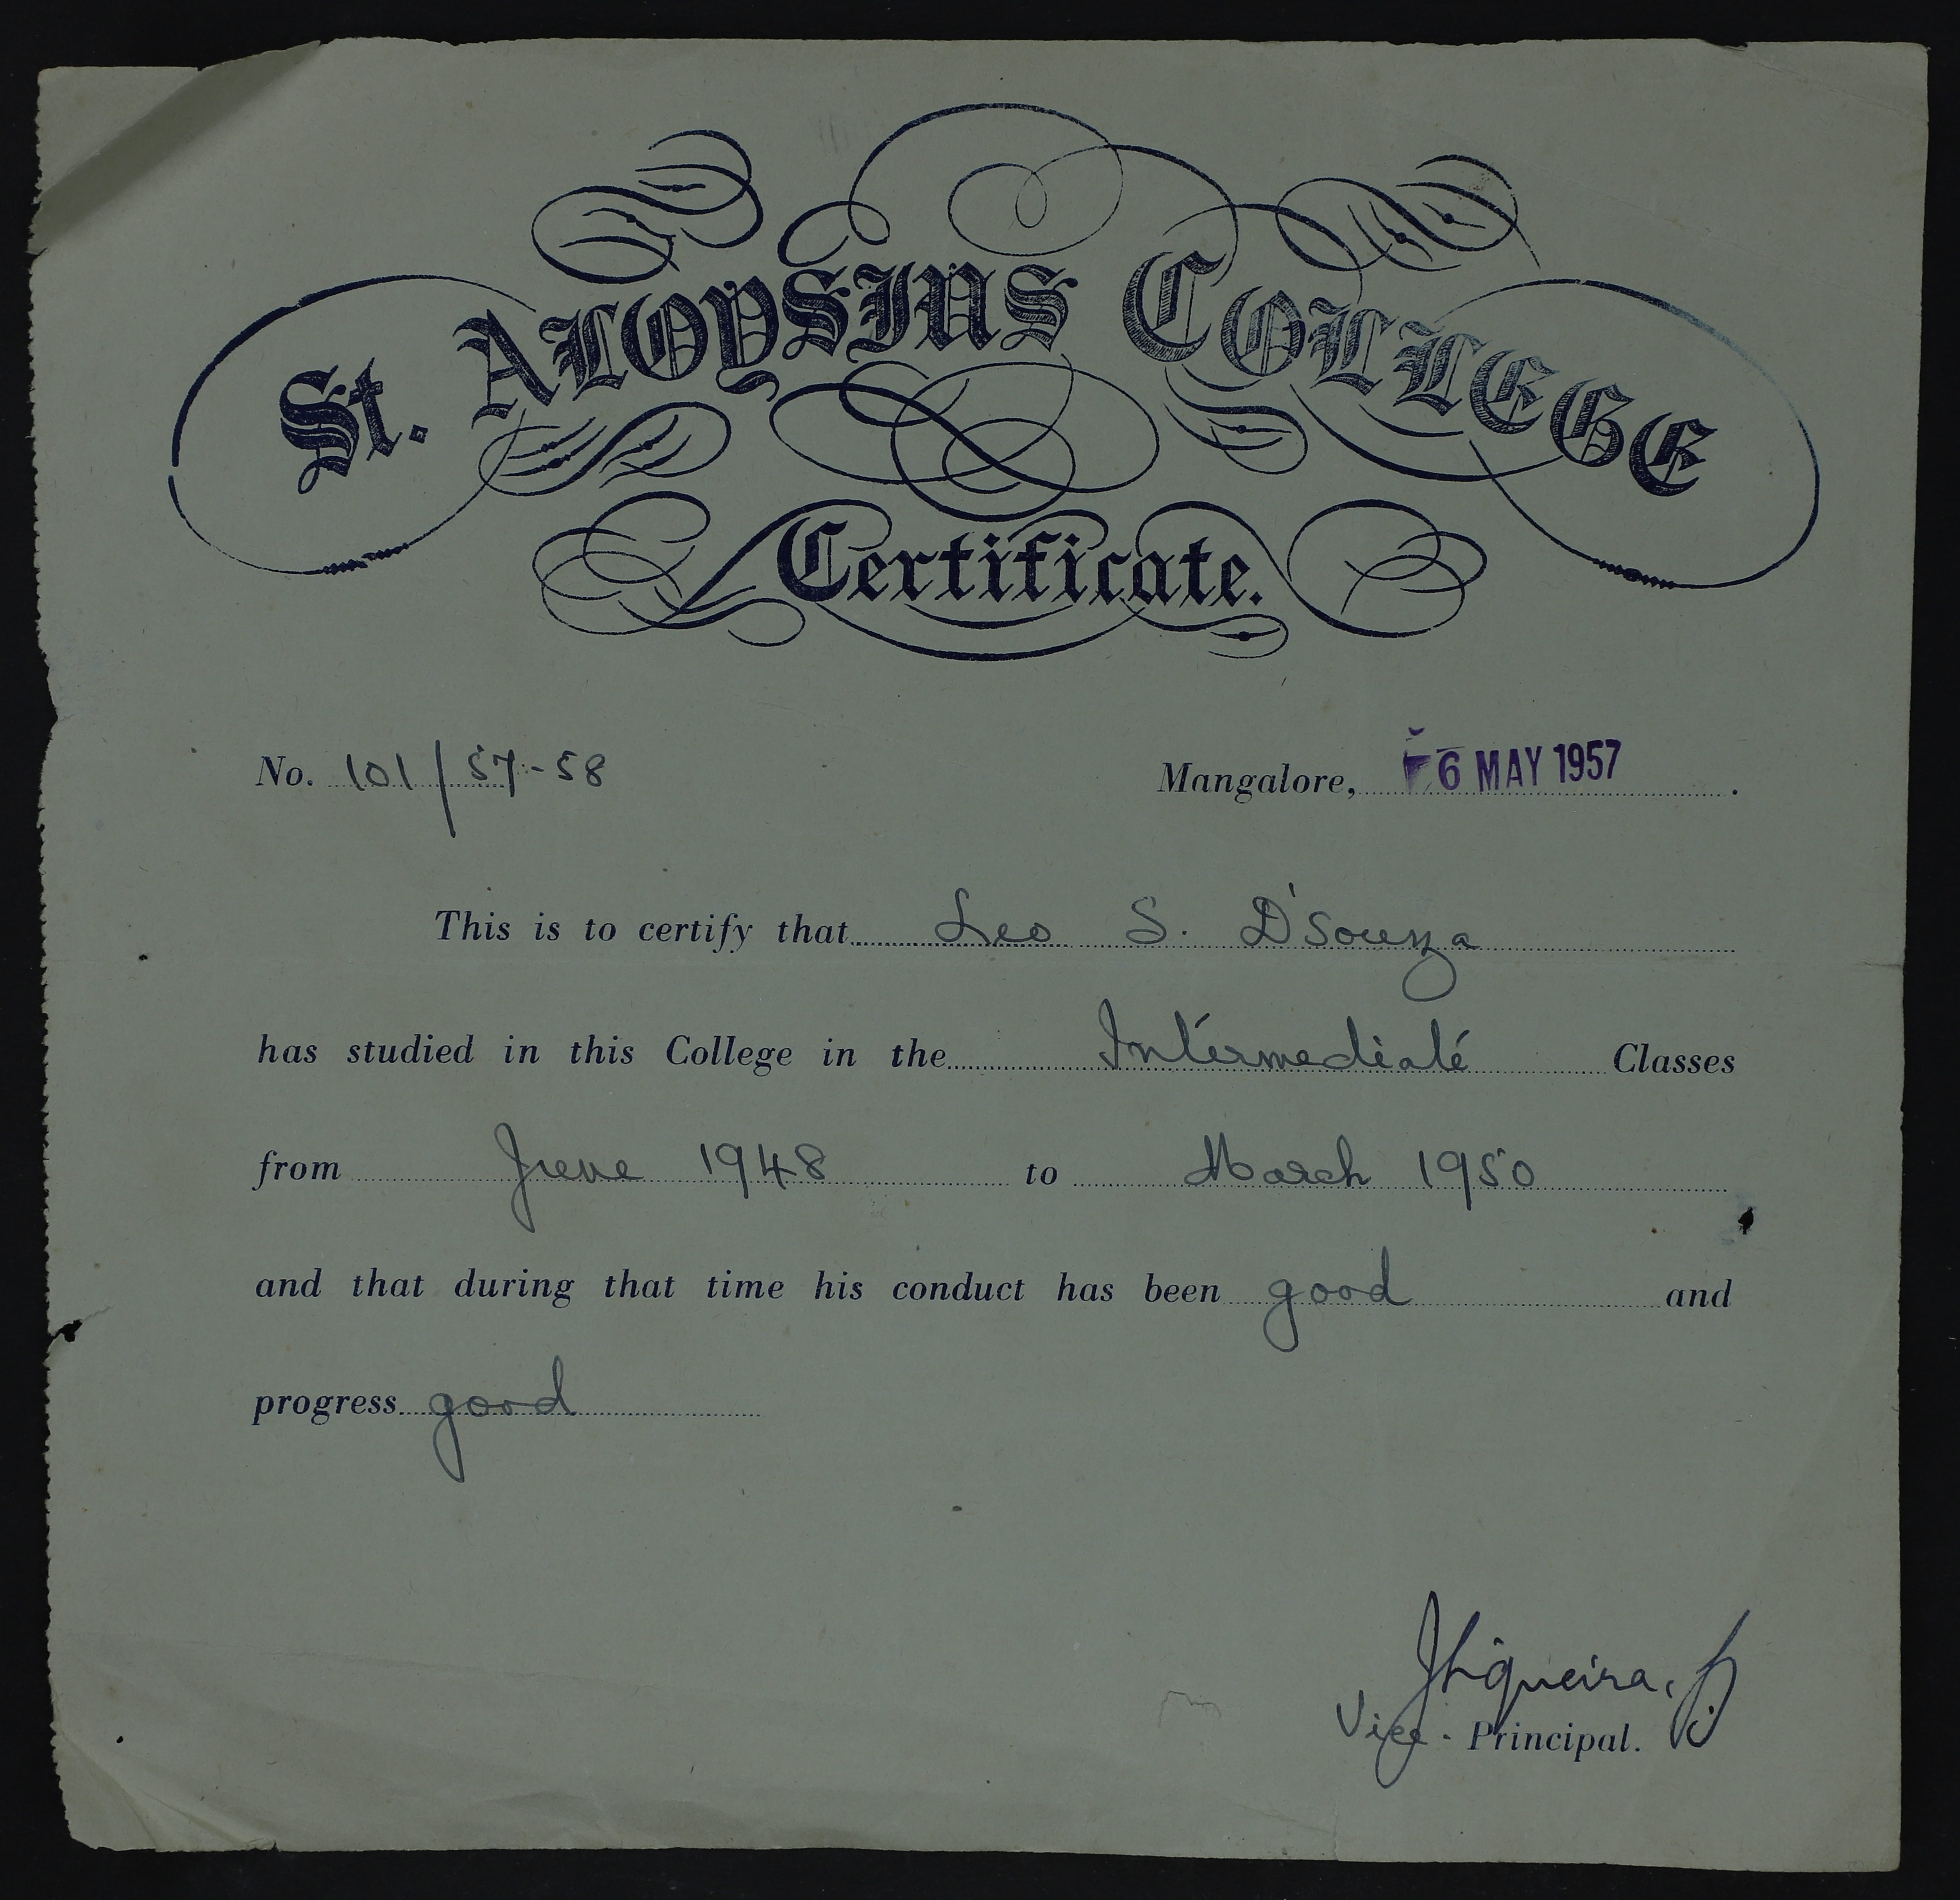 St. ALOYSIUS COLLEGE
Certificate.
No. 101/57-58 Mangalore, 6 MAY 1957.
This is to certify that Leo S. D'Souza
has studied in this College in the Intermediate Classes
from June 1948 to March 1950
and that during that time his conduct has been good and
progress good
Vice-Principal.